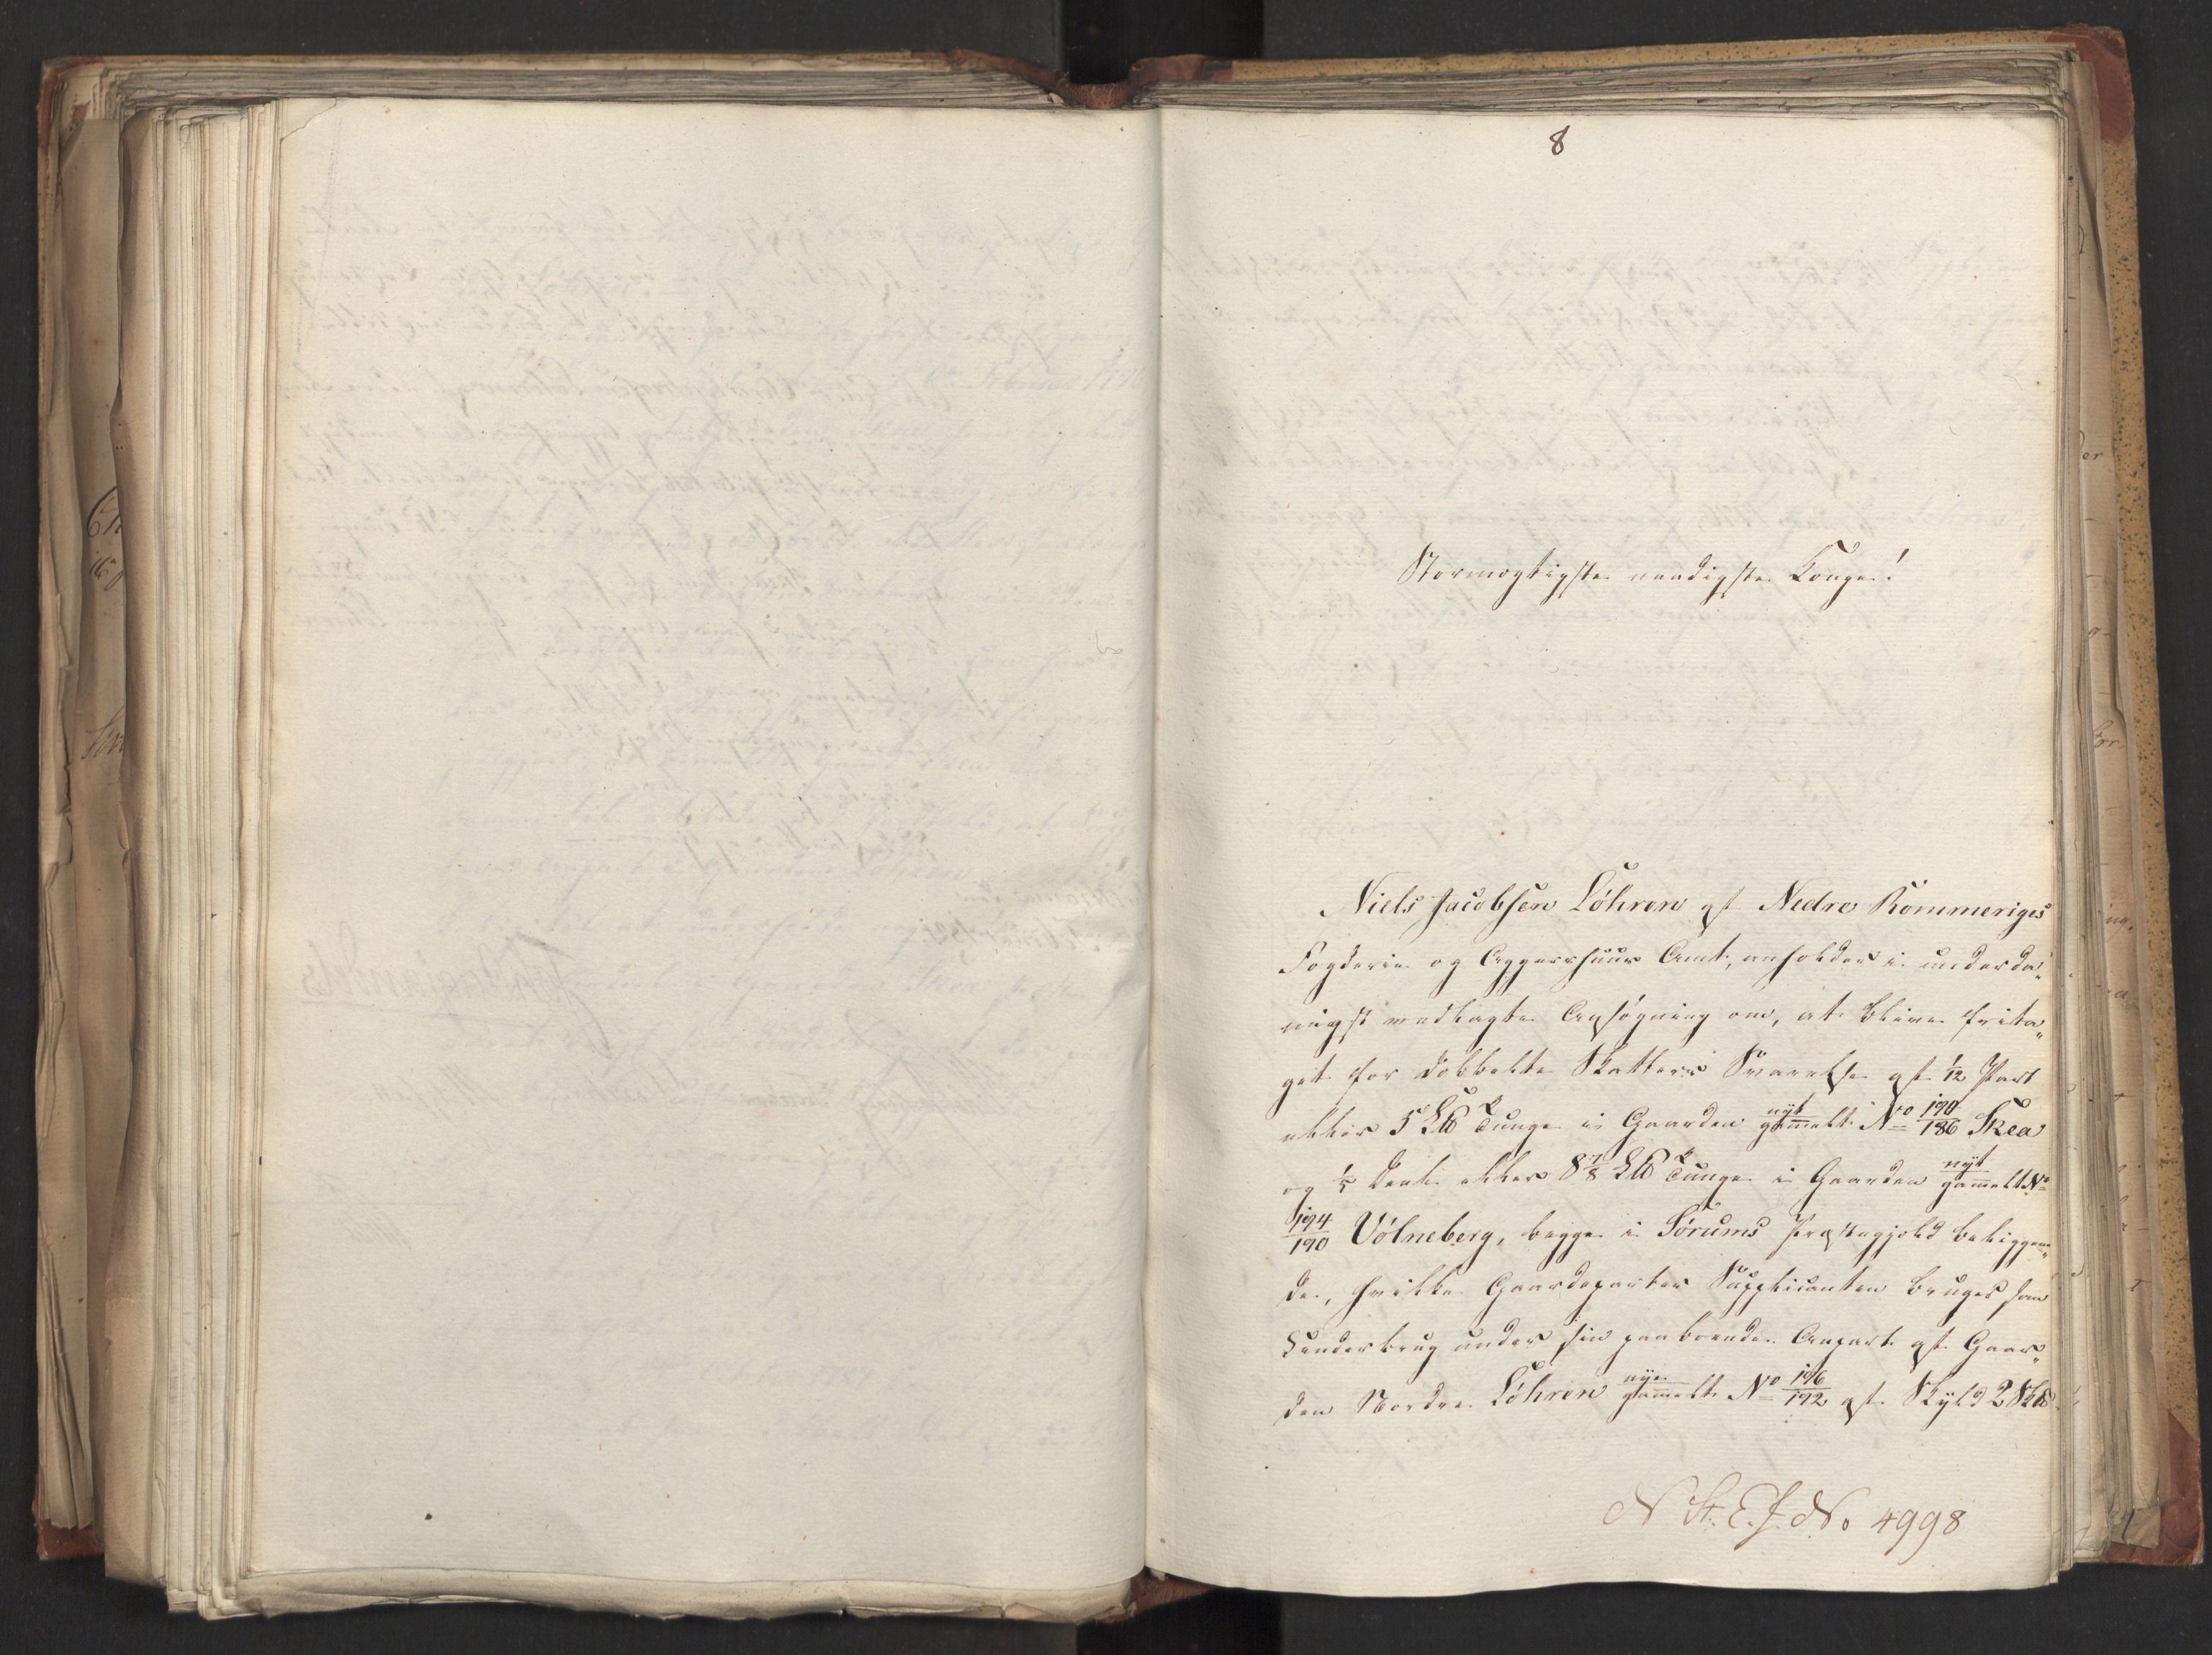 8
Stormægtigste naadigste Konge!
Niels Jacobsen Löhren af Nedre Rommeriges
Fogderie og Aggershuus Amt, anholder i underda„
nigst medlagte Ansøgning om, at blive frita„
get for dobbelte Skatters Svarelse af 1/12 Part
eller 5 L℔ Tunge i Gaarden nyt/gammelt No 190/186 Skea
og 1/5 Deel eller 8 7/8 L℔ Tunge i Gaarden nyt/gammelt No
194/190 Völneberg, begge i Sörums Præstegjeld beliggen„
de, hvilke Gaardeparter Supplicanten bruger som
Underbrug under sin paaboende Anpart af Gaar„
den Nordre Löhren nye/gammelt No 196/192 af Skyld 2 Sk℔
N St. E. J. No 4998